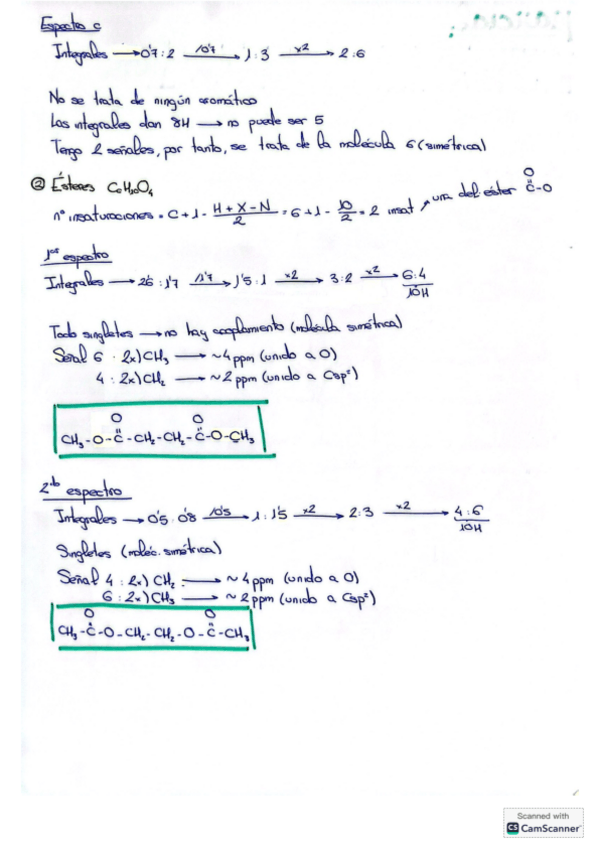 Espectro c
Integrales → 0'7 : 2 /0'7 → 1 : 3 x2 → 2 : 6
No se trata de ningún aromático
Las integrales dan 8H → no puede ser 5
Tengo 2 señales, por tanto, se trata de la molécula 6 (simétrica)
② Ésteres C₆H₁₀O₄
nº insaturaciones = C + 1 - (H + X - N)/2 = 6 + 1 - 10/2 = 2 insat, una del éster O=C-O
1er espectro
Integrales → 2'6 : 1'7 /1'7 → 1'5 : 1 x2 → 3 : 2 x2 → 6 : 4
10H
Todo singletes → no hay acoplamiento (molécula simétrica)
Señal 6 : 2x) CH₃ → ~4 ppm (unido a O)
4 : 2x) CH₂ → ~2 ppm (unido a Csp²)
O O
CH₃-O-C-CH₂-CH₂-C-O-CH₃
2do espectro
Integrales → 0'5 : 0'8 /0'5 → 1 : 1'5 x2 → 2 : 3 x2 → 4 : 6
10H
Singletes (moléc. simétrica)
Señal 4 : 2x) CH₂ → ~4 ppm (unido a O)
6 : 2x) CH₃ → ~2 ppm (unido a Csp²)
O O
CH₃-C-O-CH₂-CH₂-O-C-CH₃
Scanned with
CS CamScanner